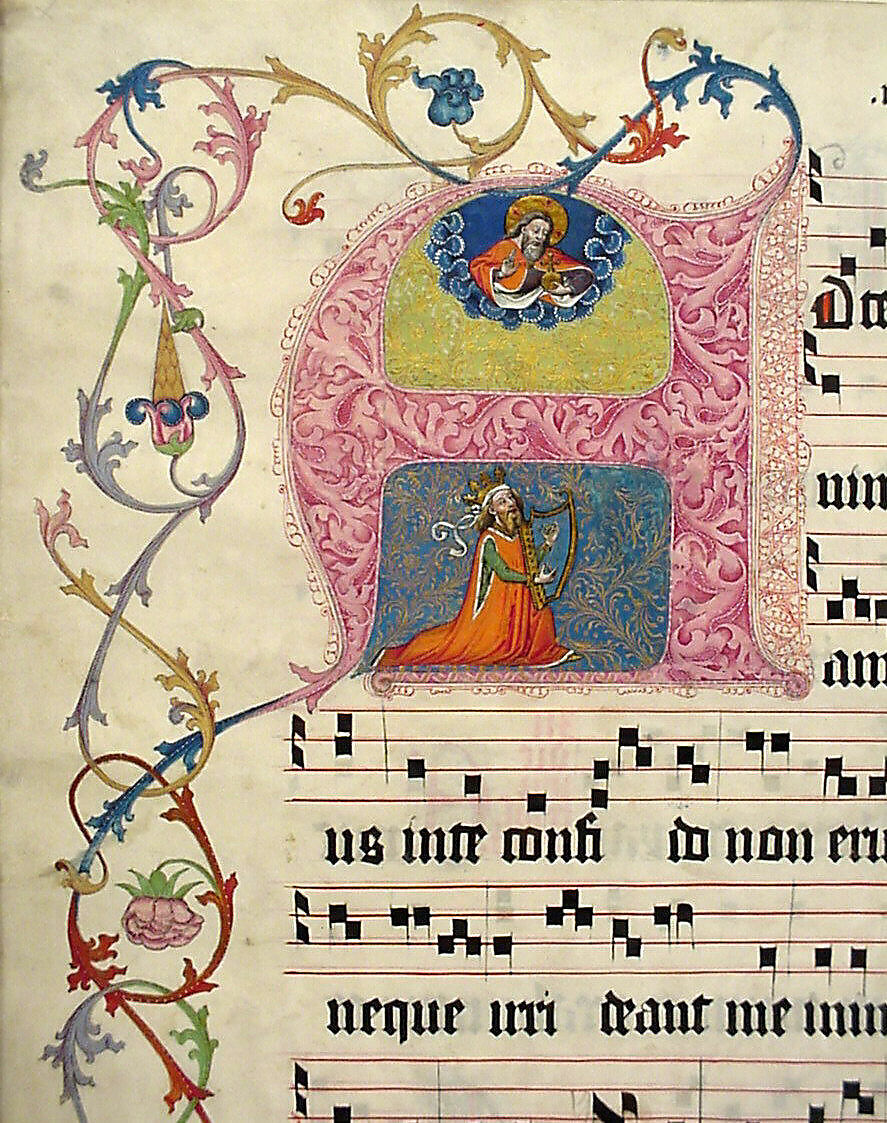 A D te
am
us inte confi do non eru
neque irri deant me inim